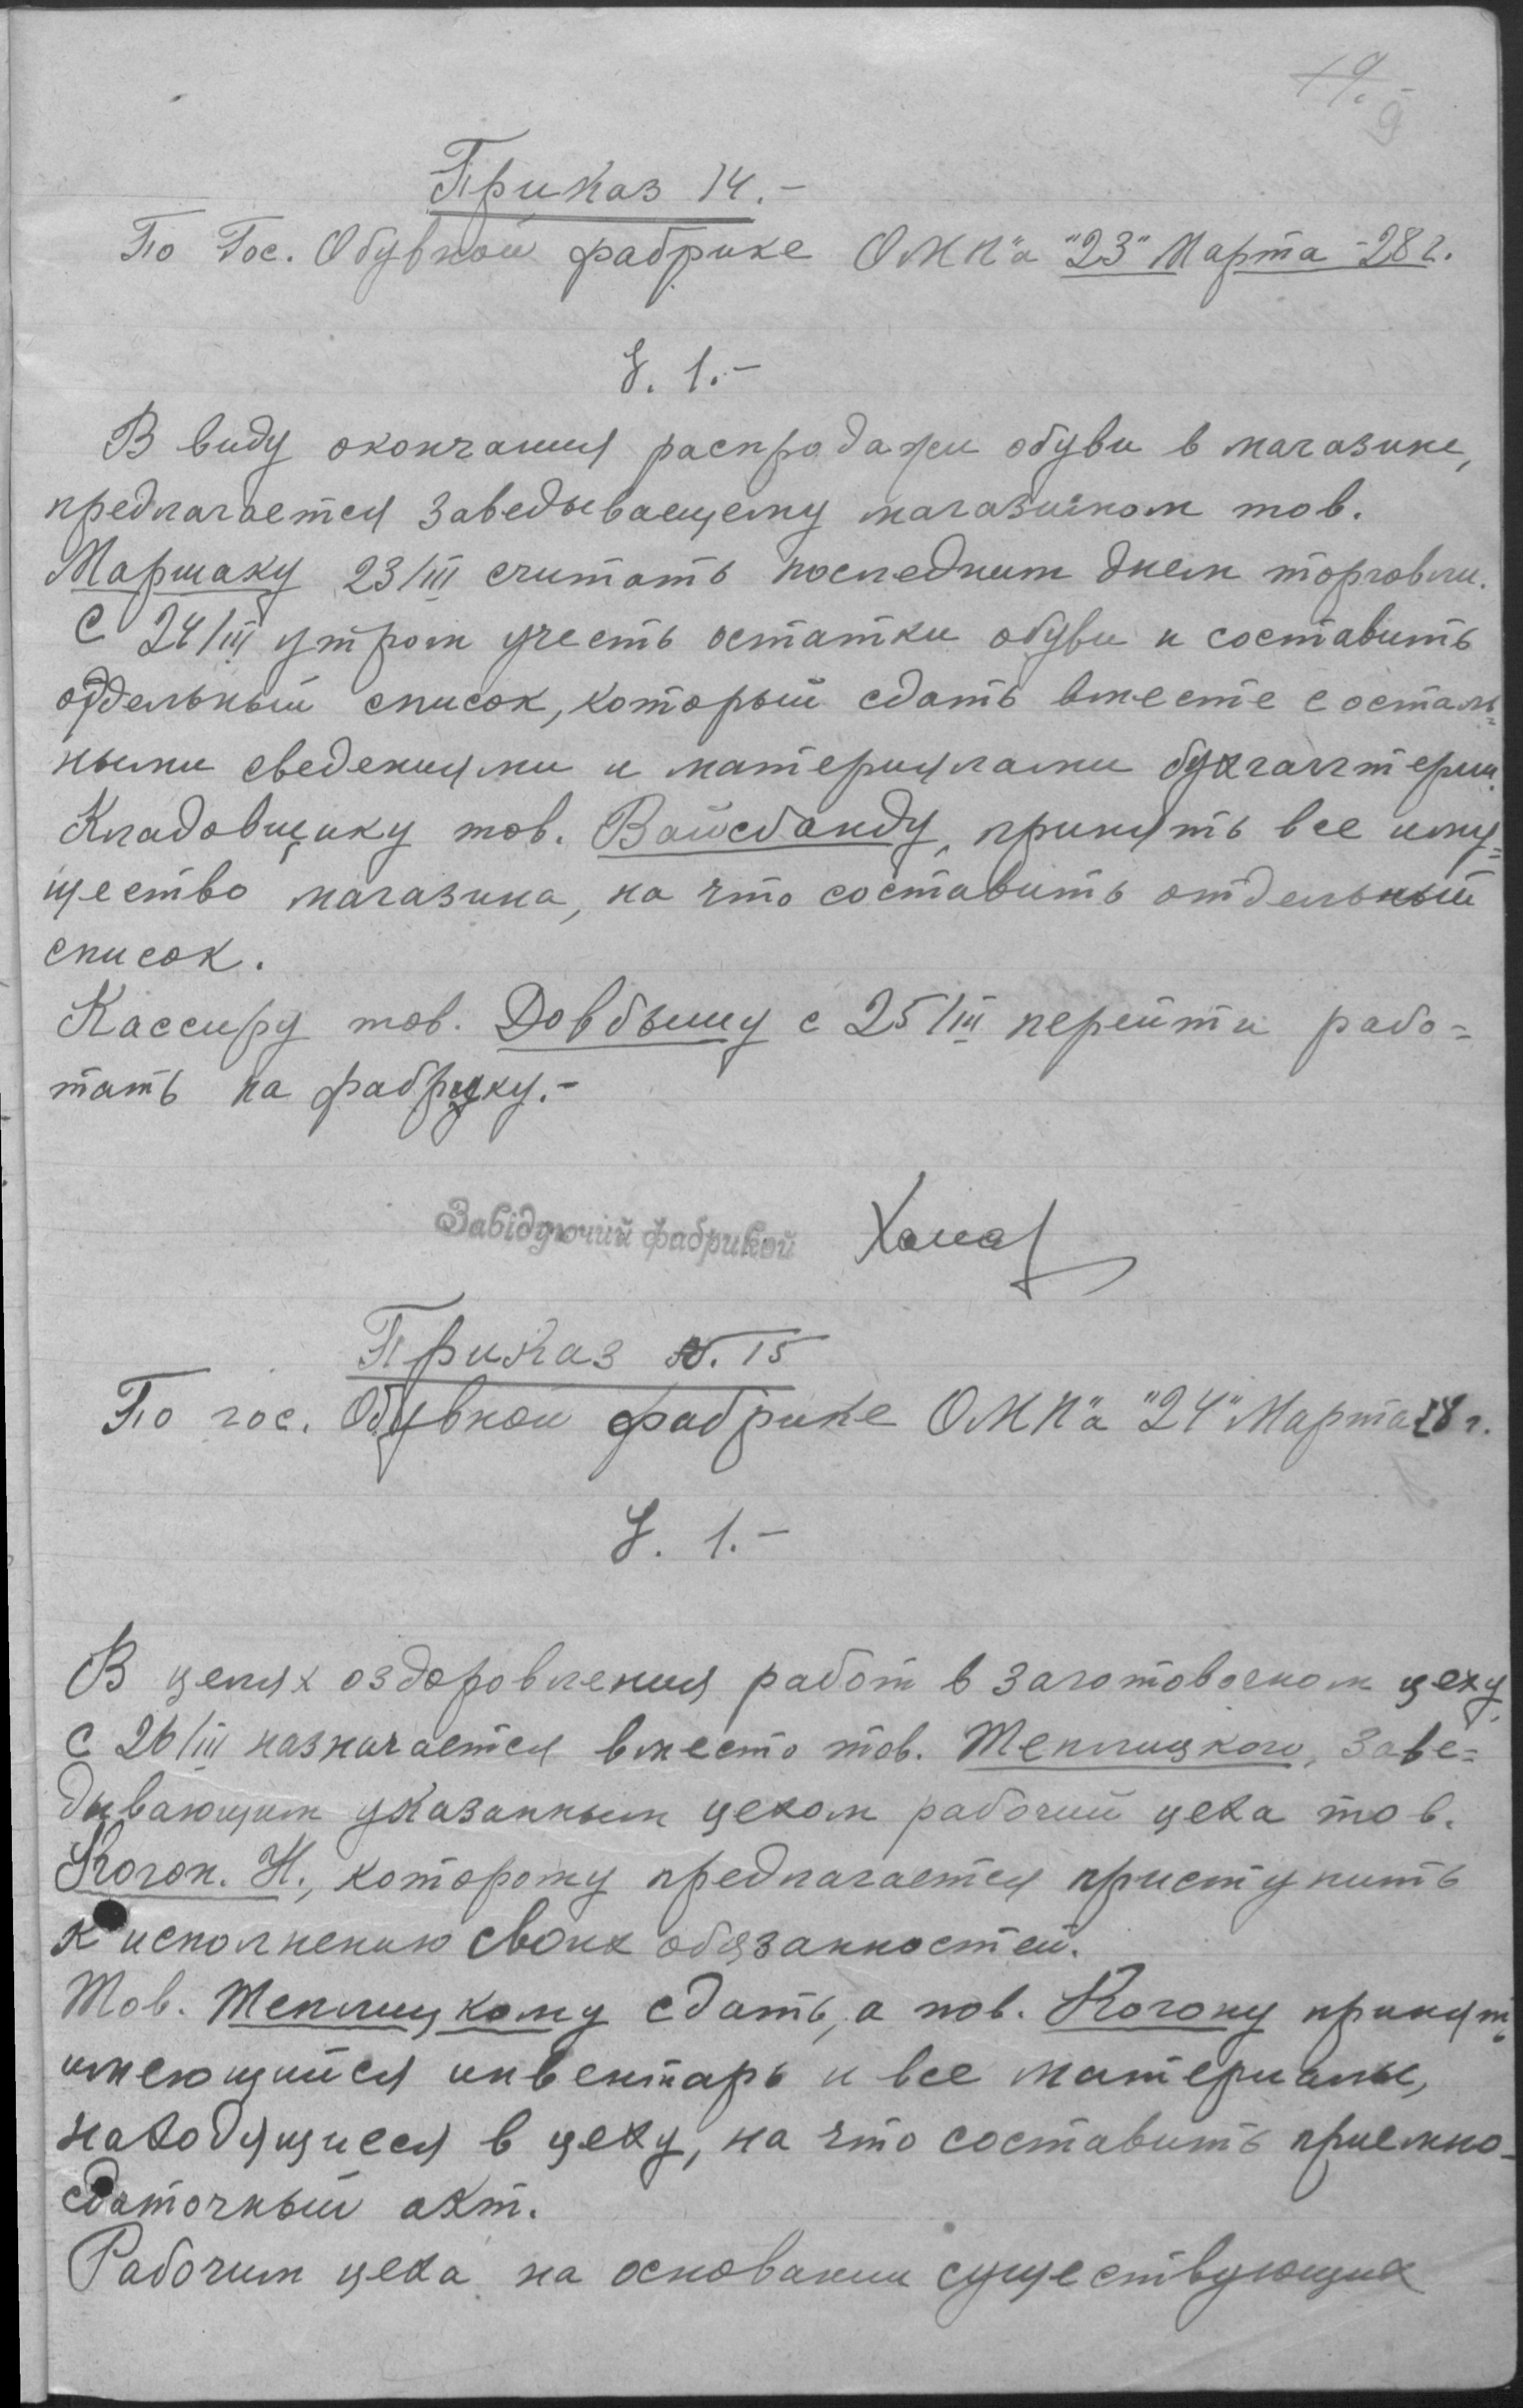 19.-
9
Приказ 14.-
По Гос. Обувной фабрике ОМК"а "23" Марта -28 г.
§. 1.-
В виду окончания распродажи обуви в магазине,
предлагается Заведывающему магазином тов.
Маршаку 23/III считать последним днем торговли.
С 24/III утром учесть остатки обуви и составить
отдельный список, который сдать вместе с осталь=
ными сведениями и материялами бухгалтерии.
Кладовщику тов. Вайсбанду, принять все иму=
щество магазина, на что составить отдельный
список.
Кассиру тов. Довбышу с 25/III перейти рабо=
тать на фабрику.-
Завідуючий фабрикой
Приказ N. 15
По гос. Обувной фабрике ОМК"а "24" Марта 28 г.
§. 1.-
В целях оздоровления работ в заготовочном цеху,
С 26/III назначается вместо тов. Теплицкого, Заве=
дывающим указанным цехом рабочий цеха тов.
Коган. Н., которому предлагается приступить
к исполнению своих обязанностей.
Тов. Теплицкому сдать, а тов. Когону принять
имеющийся инвентарь и все материалы,
находящиеся в цеху, на что составить приемно-
сдаточный акт.
Рабочим цеха на основании существующих